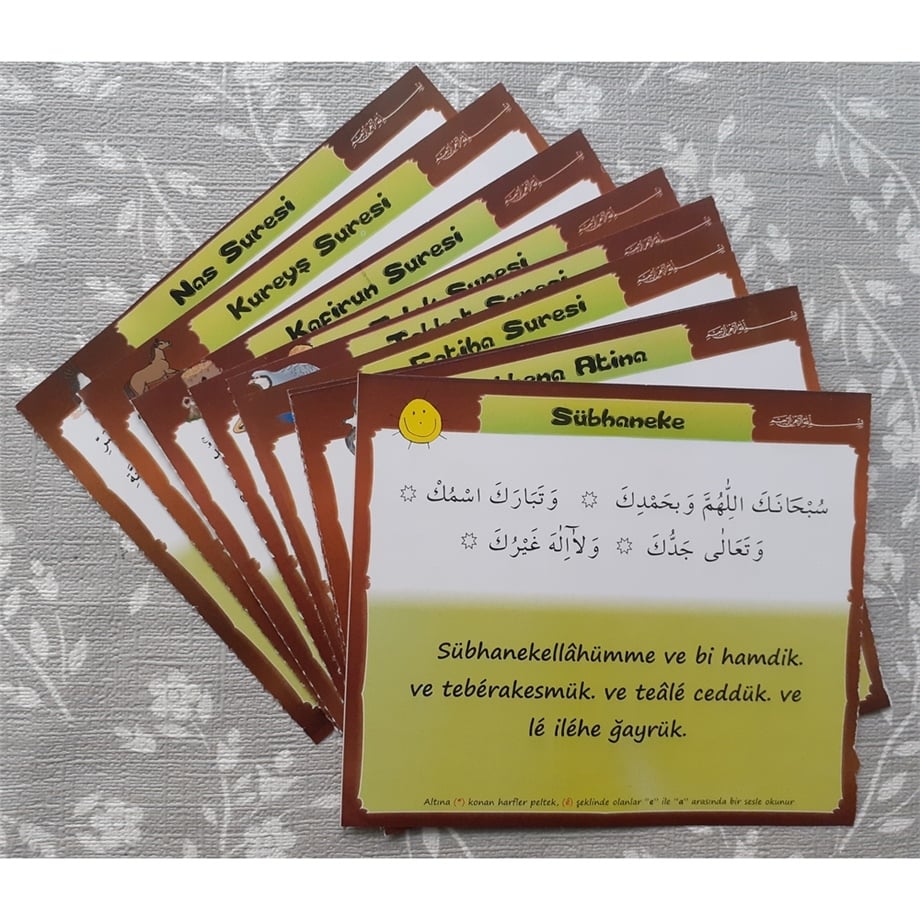 Nas Suresi
Kureyş Suresi
Kafirun Suresi
Suresi
Suresi
Fatiha Suresi
Atina
Sübhaneke
سُبْحَانَكَ اللّٰهُمَّ وَبِحَمْدِكَ ۞ وَتَبَارَكَ اسْمُكْ ۞
وَتَعَالٰى جَدُّكَ ۞ وَلَآاِلٰهَ غَيْرُكَ ۞
Sübhanekellâhümme ve bi hamdik.
ve tebérakesmük. ve teâlé ceddük. ve
lé iléhe ğayrük.
Altına (*) konan harfler peltek, (é) şeklinde olanlar "e" ile "a" arasında bir sesle okunur